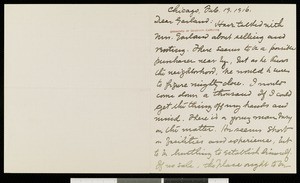 Chicago, Feb. 19. 1916.
Dear Garland: Have talked with
Mrs. Garland about selling and
renting. There seems to be a possible
purchaser near by, but as he knows
the neighborhood, he would have
to figure mighty close. I would
come down a thousand if I could
get the thing off my hands and
mind. There is a young man
on the matter. He seems short
on facilities and experience, but
to be hustling to establish himself.
If no sale, the place ought to be